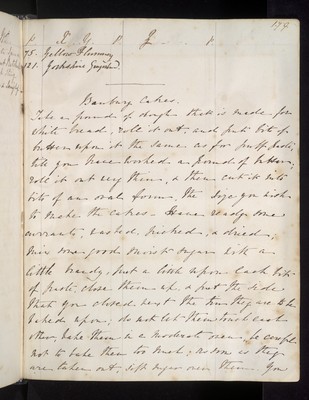 179.
P. X Y P Z P
75. Yellow Flummery
121. Yorkshire Gingerbread
Banbury Cakes.
Take a pound of dough that is made for
white bread, roll it out, and put bits of
butter upon it the same as for puff paste,
till you have worked a pound of butter,
roll it out very thin, & then cut it into
bits of an oval form, the size you wish
to make the cakes. Have ready some
currants, washed, picked, & dried.
Mix some good moist sugar with a
little brandy, put a little upon each bit
of paste, close them up, & put the side
that you closed next the tin they are to be
baked upon, do not let them touch each
other, bake them in a moderate oven, be careful
not to bake them too much; as soon as they
are taken out, sift sugar over them. You